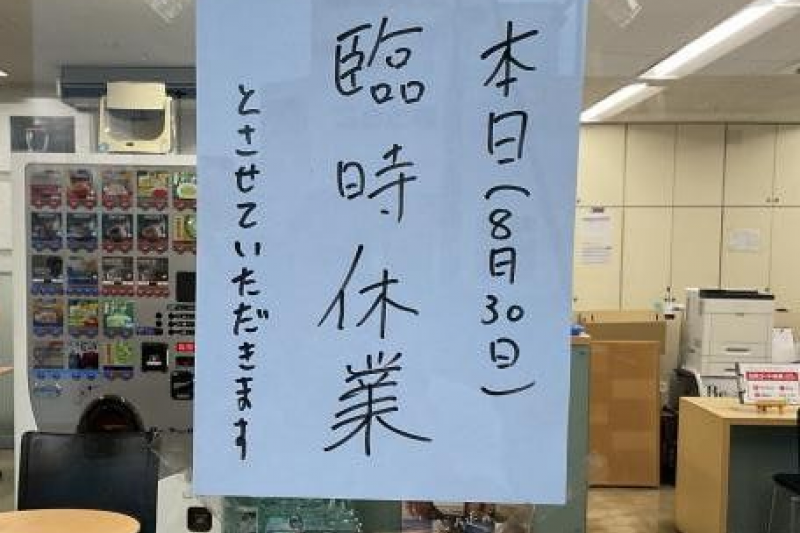 本日(8月30日)
臨時休業
とさせていただきます